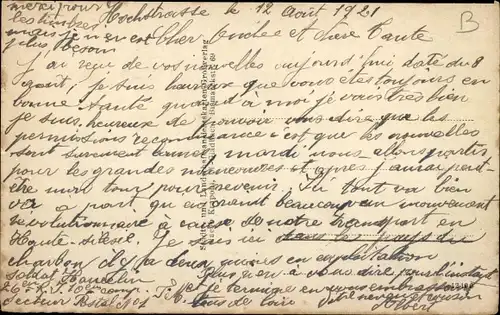 merci pour
les timbres Hochstrasse le 12 Août 1921
mais je n'en est Cher Oncle et chère Tante
plus besoin
J'ai reçu de vos nouvelles aujourd'hui daté du 8
août, je suis heureux que vous êtes toujours en
bonne santé quand à moi je vais très bien
je suis heureux de pouvoir vous dire que les
permissions recommence c'est que les nouvelles
sont surement bonnes, mardi nous allons partir
pour les grandes manœuvres et après j'aurai peut
être mon tour pour revenir. Ici tout va bien
à part qu'on craint beaucoup un mouvement
révolutionnaire à cause de notre transport en
Haute-silésie. Je suis ici dans le pays du
charbon il y a deux mines en exploitation
Soldat Plus rien à vous dire pour l'instant
et je termine en vous embrassant
10e comp.
Secteur Postal 101 tous de loin votre neveu et cousin
Albert